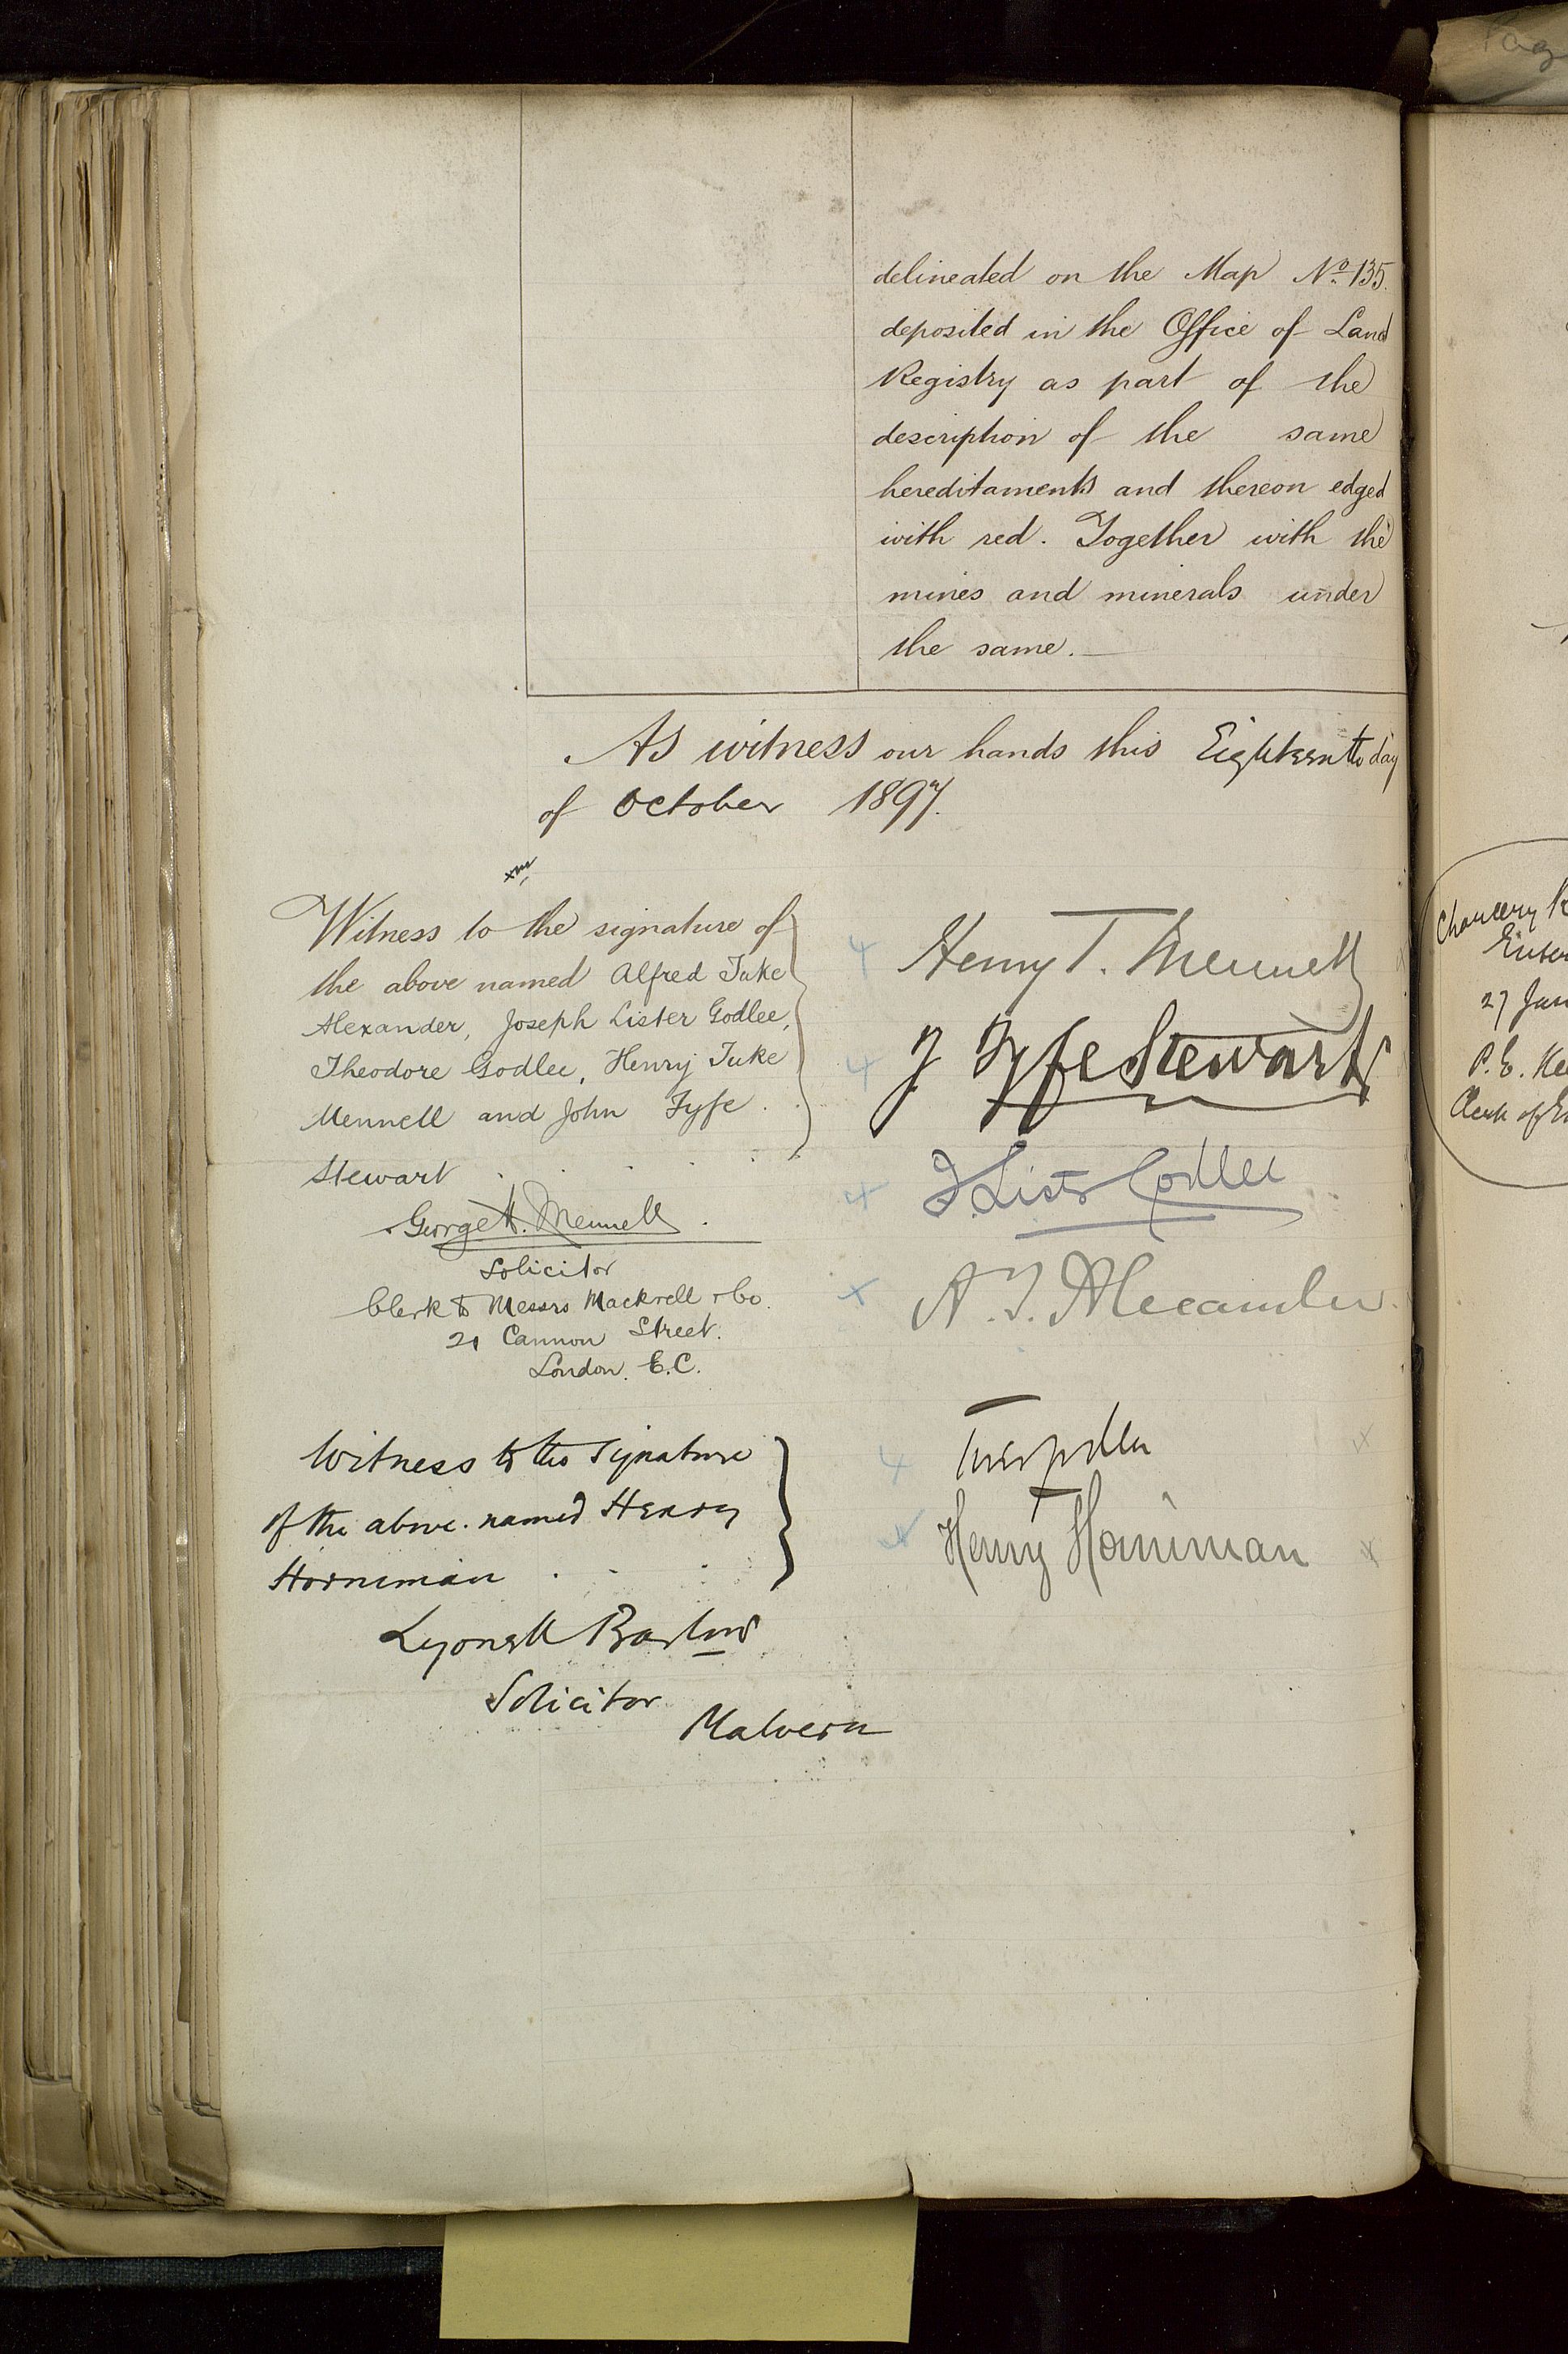 delineated on the Map No. 135.
deposited in the Office of Land
Registry as part of the
description of the same
hereditaments and thereon edged
with red. Together with the
mines and minerals under
the same.
As witness our hands this Eighteenth day
of October 1897.
Witness to the signature of
the above named Alfred Tuke
Alexander, Joseph Lister Godlee,
Theodore Godlee, Henry Tuke
Mennell and John Fyfe
Stewart
George H. Mennell
Solicitor
Clerk to Messrs Mackrell & Co.
21 Cannon Street.
London. E.C.
Henry T. Mennell
J Fyfe Stewart
J. Lister Godlee
A. T. Alexander.
Witness to the signature
of the above named Henry
Horniman
Lyonell
Solicitor
Malvern
Henry Horniman
Chancery
27 Jan
P. E.
Clerk of
Pag